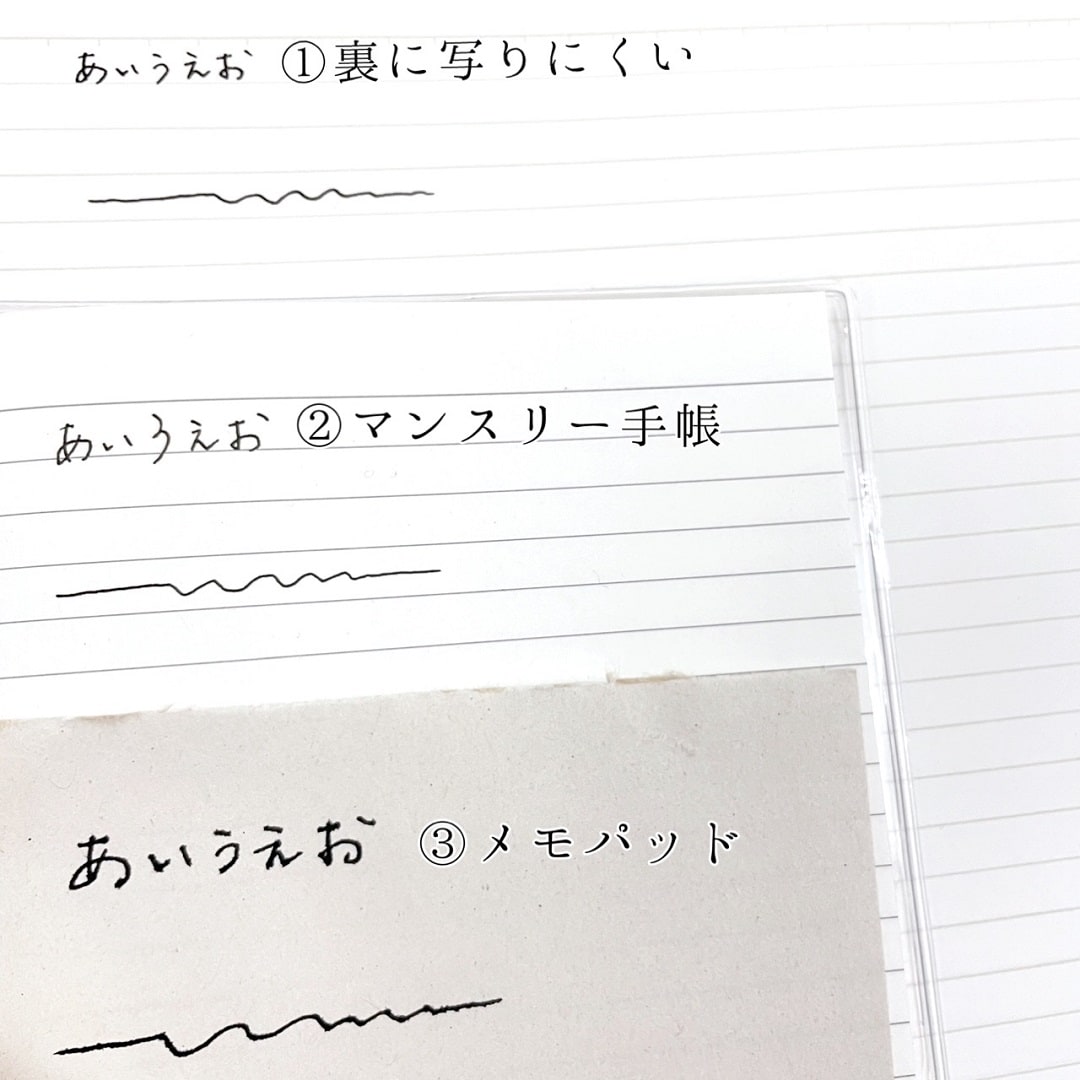 あいうえお ①裏に写りにくい
あいうえお ②マンスリー手帳
あいうえお ③メモパッド